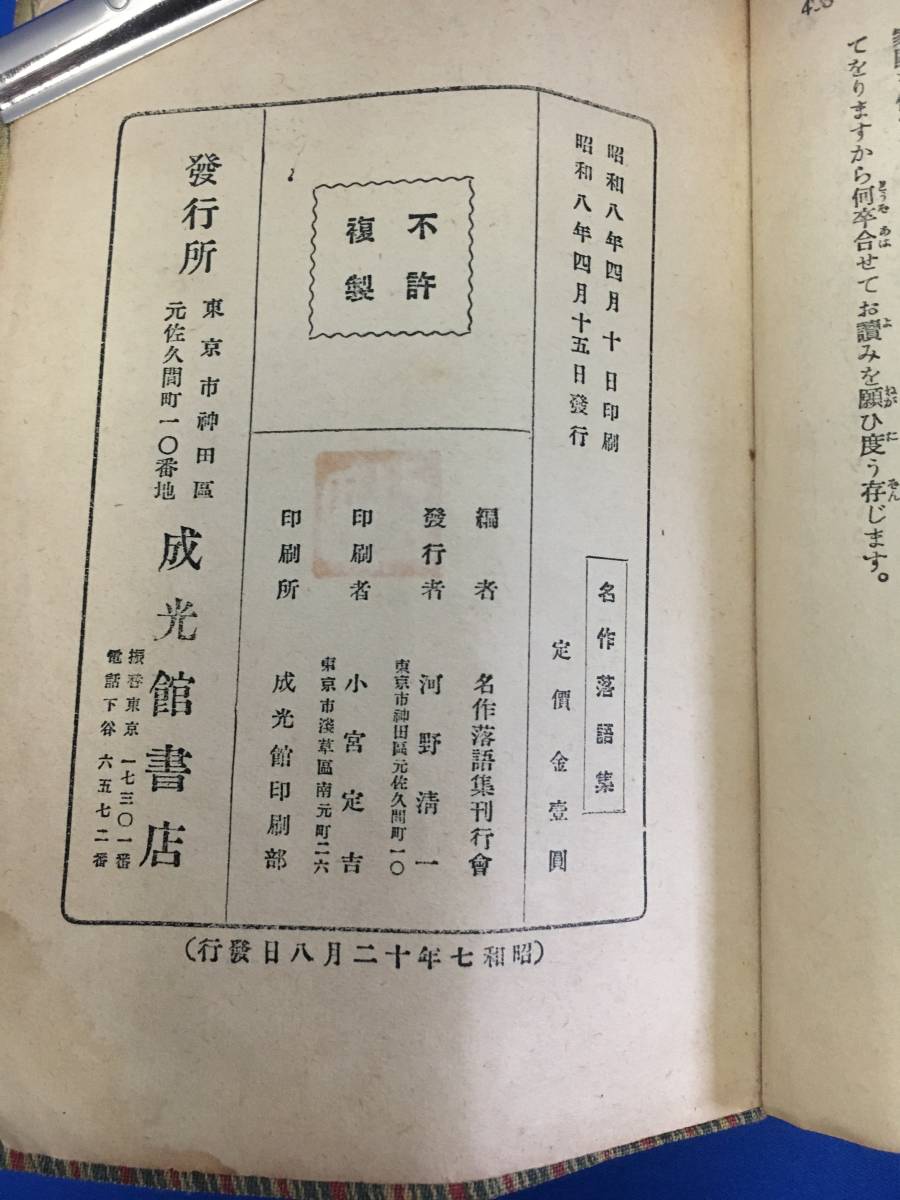 てをりますから何卒合せてお讀みを願ひ度う存じます。
昭和八年四月十日印刷
昭和八年四月十五日發行
名作落語集
定價金壹圓
不許
複製
編者 名作落語集刊行會
發行者 河野清一
東京市神田區元佐久間町一〇
印刷者 小宮定吉
東京市淺草區南元町二六
印刷所 成光館印刷部
發行所
東京市神田區
元佐久間町一〇番地
成光館書店
振替東京一七三〇一番
電話下谷六五七二番
(昭和七年十二月八日發行)